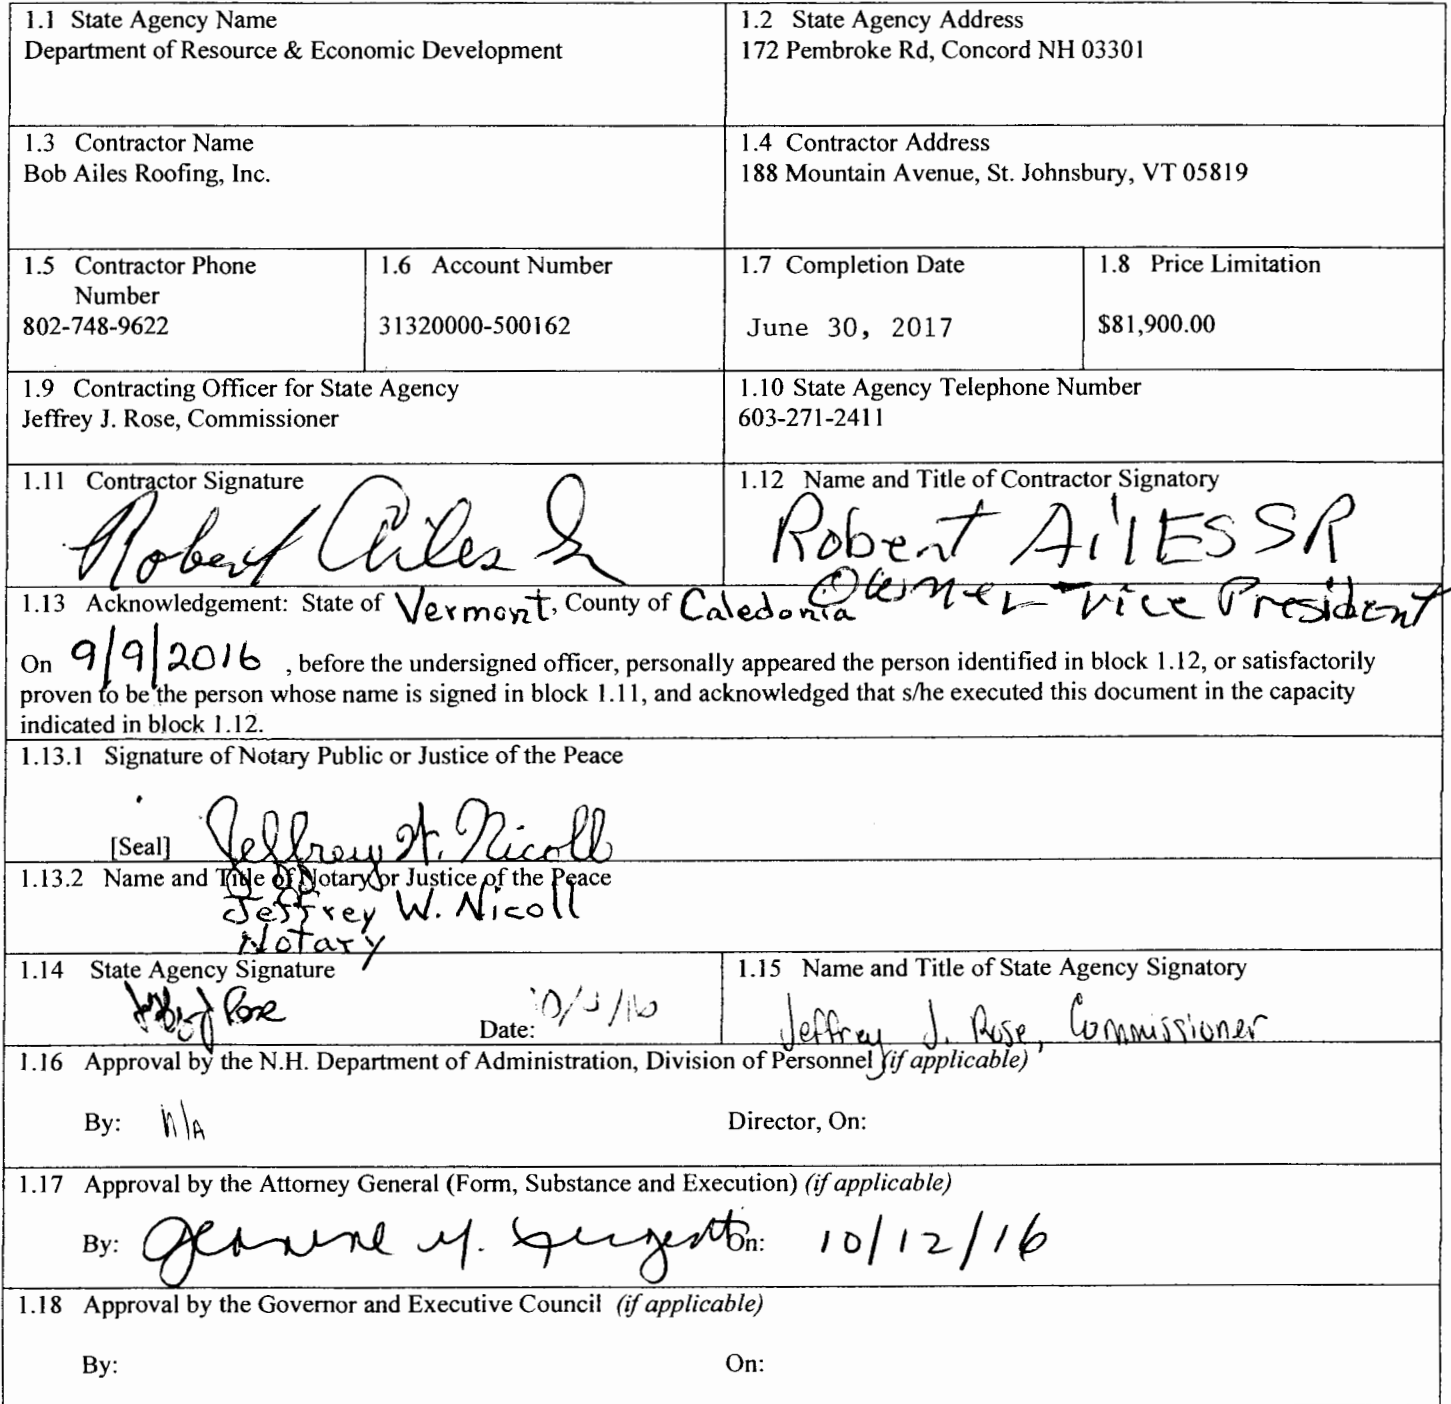 1.1 State Agency Name
Department of Resource & Economic Development
1.2 State Agency Address
172 Pembroke Rd, Concord NH 03301
1.3 Contractor Name
Bob Ailes Roofing, Inc.
1.4 Contractor Address
188 Mountain Avenue, St. Johnsbury, VT 05819
1.5 Contractor Phone
Number
802-748-9622
1.6 Account Number
31320000-500162
1.7 Completion Date
June 30, 2017
1.8 Price Limitation
$81,900.00
1.9 Contracting Officer for State Agency
Jeffrey J. Rose, Commissioner
1.10 State Agency Telephone Number
603-271-2411
1.11 Contractor Signature
Robert Ailes Sr
1.12 Name and Title of Contractor Signatory
Robert AilES SR
Owner Vice President
1.13 Acknowledgement: State of Vermont, County of Caledonia
On 9/9/2016 , before the undersigned officer, personally appeared the person identified in block 1.12, or satisfactorily
proven to be the person whose name is signed in block 1.11, and acknowledged that s/he executed this document in the capacity
indicated in block 1.12.
1.13.1 Signature of Notary Public or Justice of the Peace
[Seal] Jeffrey W. Nicoll
1.13.2 Name and Title of Notary or Justice of the Peace
Jeffrey W. Nicoll
Notary
1.14 State Agency Signature
Rose
Date:
1.15 Name and Title of State Agency Signatory
Jeffrey J. Rose, Commissioner
1.16 Approval by the N.H. Department of Administration, Division of Personnel (if applicable)
By: N/A
Director, On:
1.17 Approval by the Attorney General (Form, Substance and Execution) (if applicable)
By: M. On: 10/12/16
1.18 Approval by the Governor and Executive Council (if applicable)
By:
On: